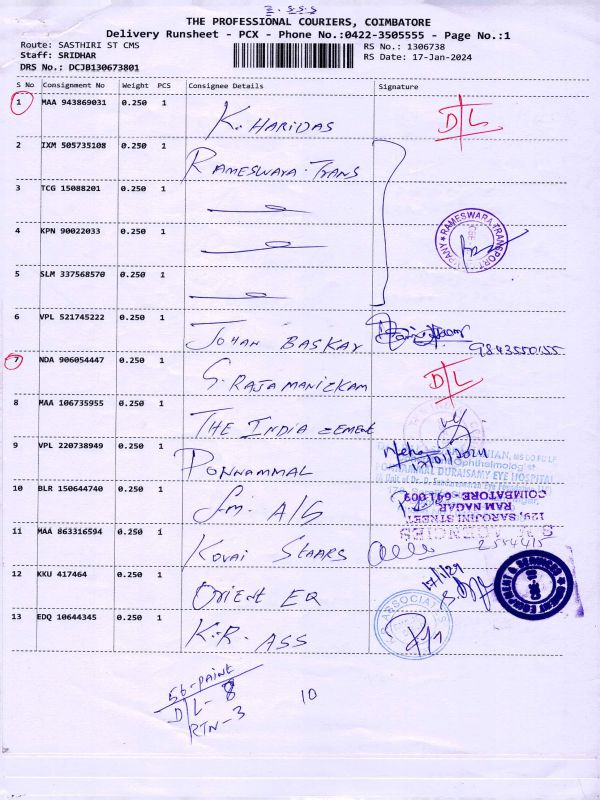 THE PROFESSIONAL COURIERS, COIMBATORE
Delivery Runsheet - PCX - Phone No.:0422-3505555 - Page No.:1
Route: SASTHIRI ST CMS
RS No.: 1306738
Staff: SRIDHAR
RS Date: 17-Jan-2024
DRS No.: DCJB130673801
S No Consignment No Weight PCS Consignee Details Signature
1 MAA 943869031 0.250 1 K. HARIDAS D/L
2 IXM 505735108 0.250 1 RAMESWARA. TRANS
3 TCG 15088201 0.250 1
4 KPN 90022033 0.250 1
RAMESWARA TRANSPORT
5 SLM 337568570 0.250 1
6 VPL 521745222 0.250 1 JOHAN BASKAY
9843550155
7 NDA 906054447 0.250 1 G. RAJAMANICKAM D/L
8 MAA 106735955 0.250 1 THE INDIA CEMENT
9 VPL 220738949 0.250 1 PONNAMMAL
17/01/2024
DURAISAMY EYE HOSPITAL
10 BLR 150644740 0.250 1 Sm. A/G
129, SAROJINI STREET
RAM NAGAR,
COIMBATORE - 641 009
11 MAA 863316594 0.250 1 KOVAI STAARS
12 KKU 417464 0.250 1 ORIENT EQ
17/1/24
13 EDQ 10644345 0.250 1 K.R. ASS
ASSOCIATES
56-POINT
D/L- 8 10
RTN-3